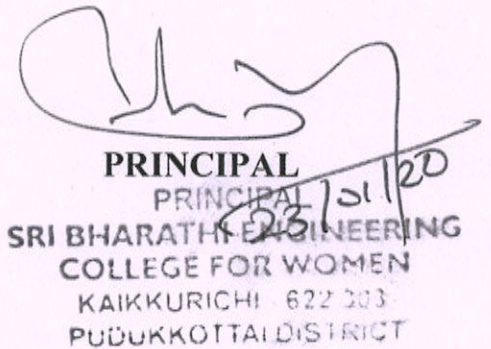 PRINCIPAL
PRINCIPAL
23/01/20
SRI BHARATHI ENGINEERING
COLLEGE FOR WOMEN
KAIKKURICHI 622 303
PUDUKKOTTAI DISTRICT